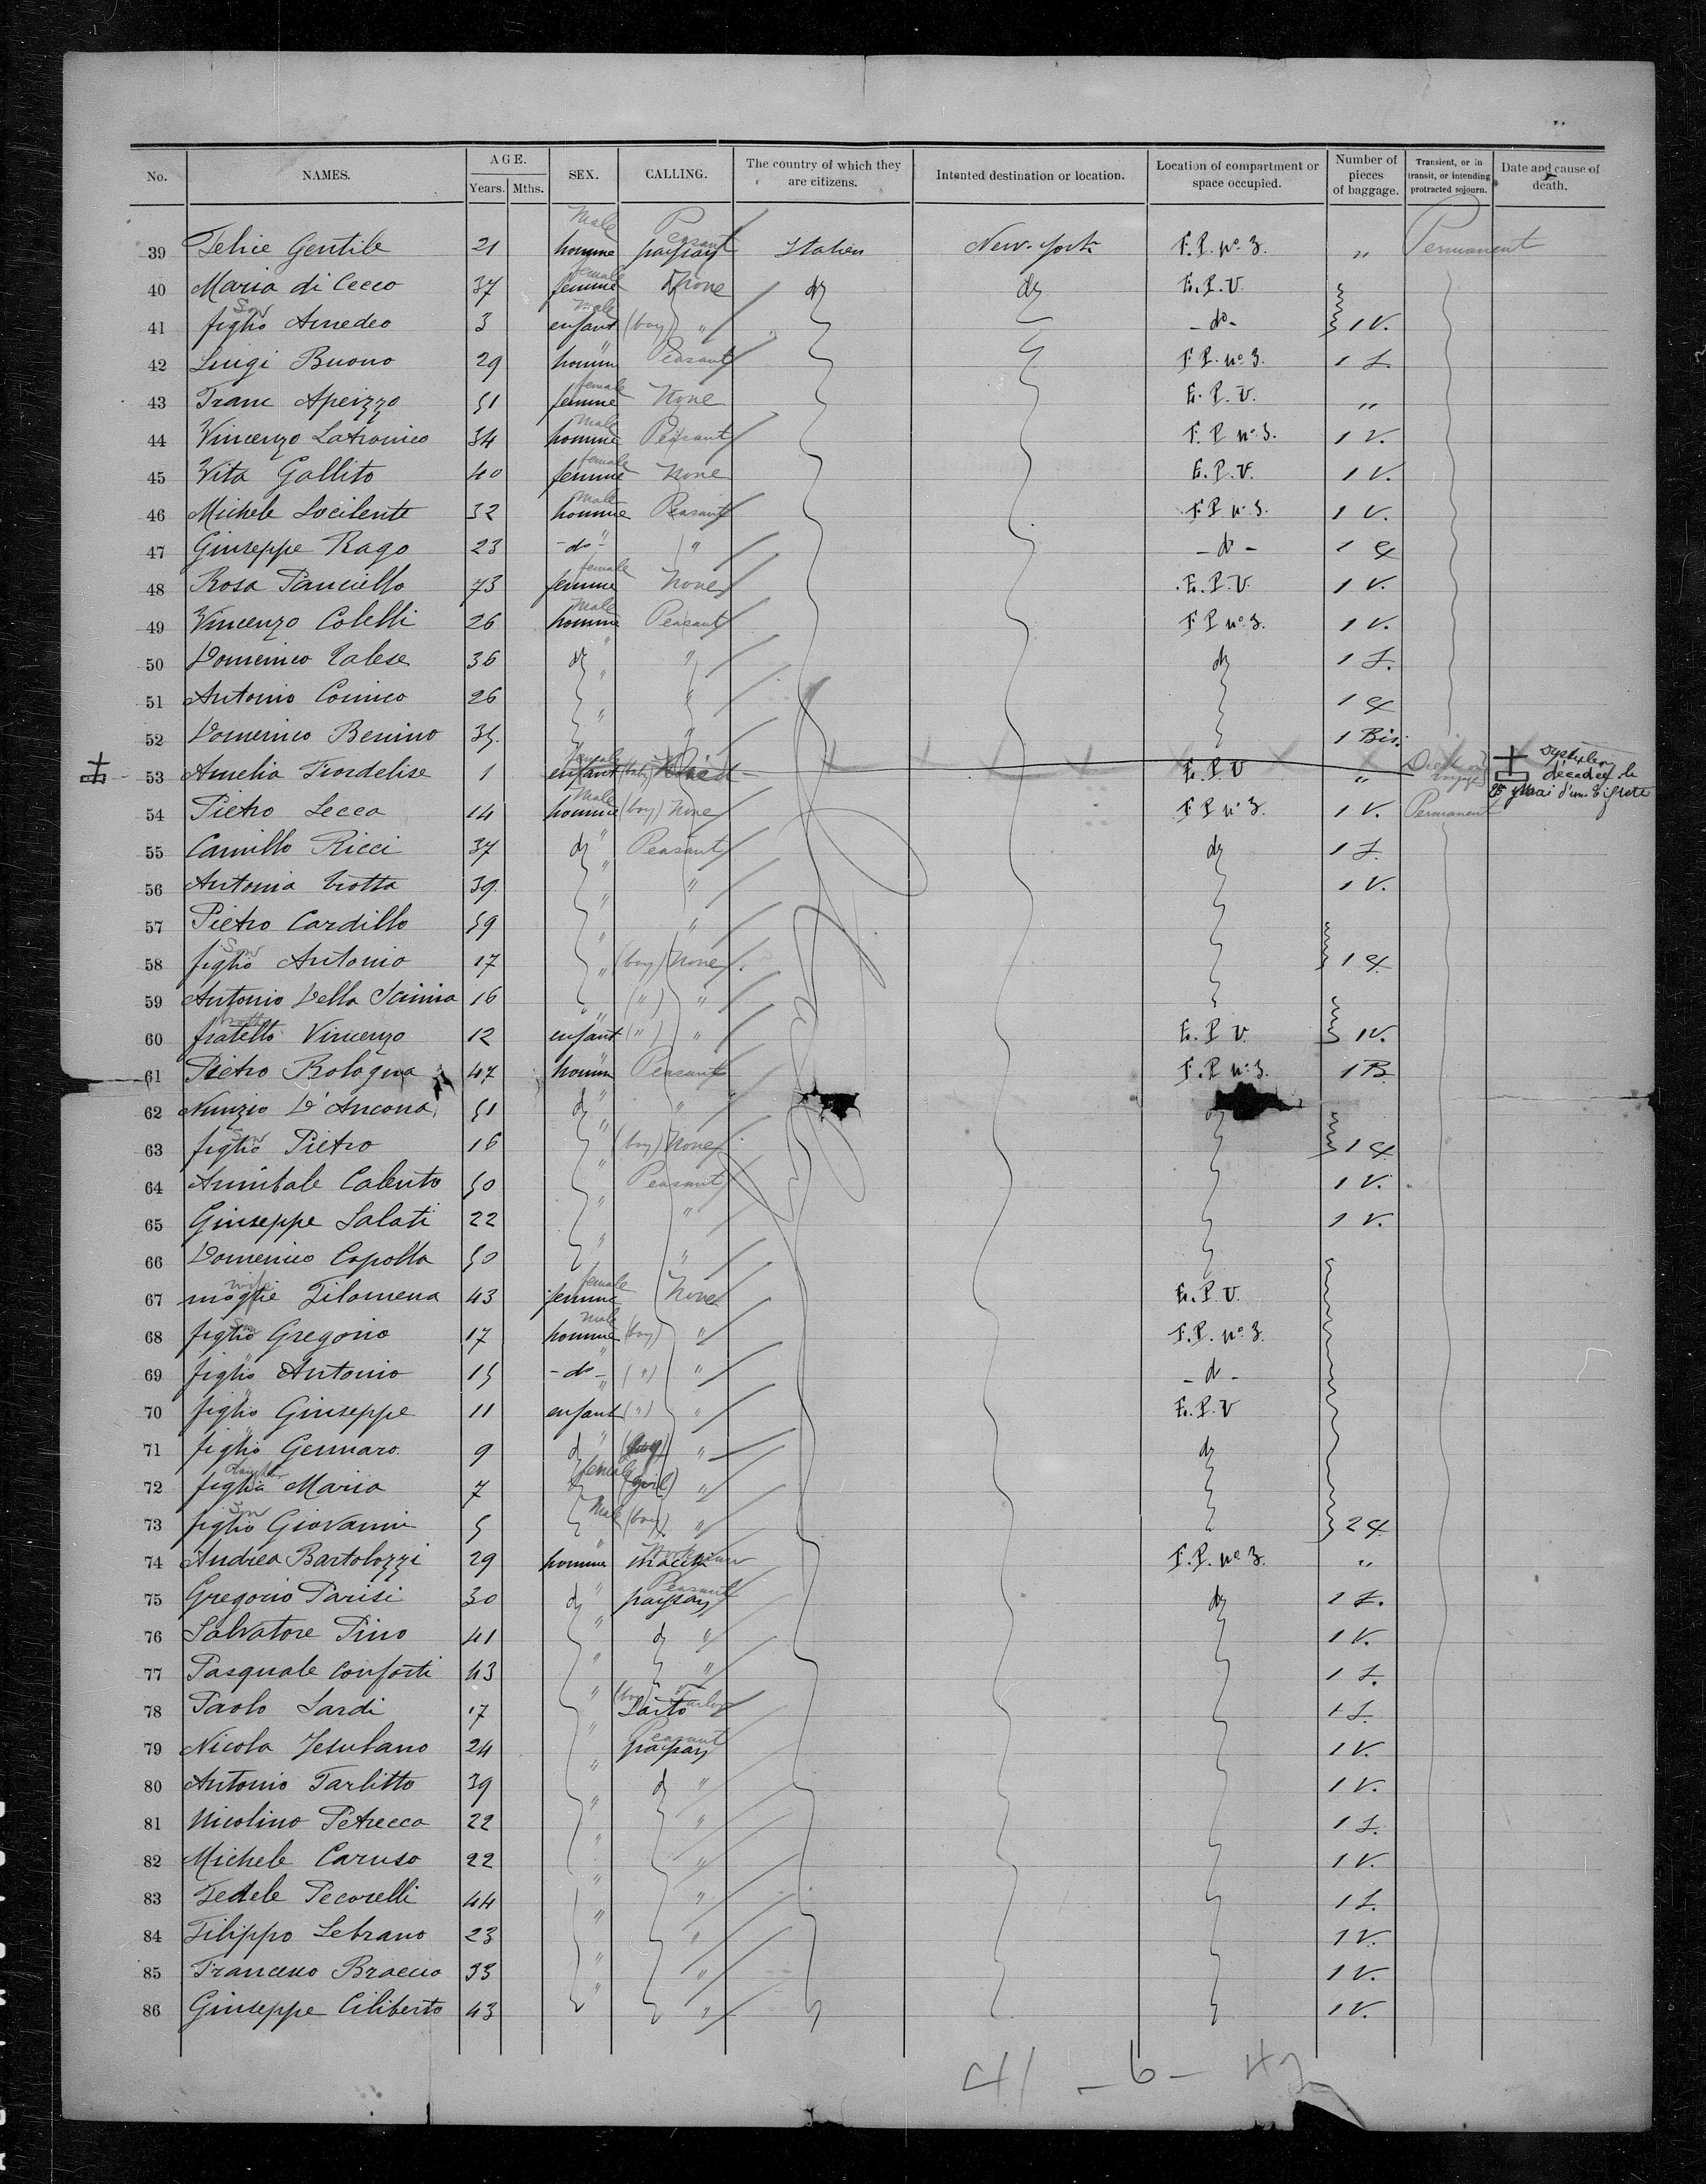 No. NAMES. AGE. Years. Mths. SEX. CALLING. The country of which they are citizens. Intented destination or location. Location of compartment or space occupied. Number of pieces of baggage. Transient, or in transit, or intending protracted sojourn. Date and cause of death.
39 Felice Gentile 21 Male homme Peasant paysan Italien New-York F.P. nº 3. " Permanent
40 Maria di Cecco 37 female femme None do do E.P.V.
41 Son figlio Amedeo 3 Male enfant (boy) " -do- 1 V.
42 Luigi Buono 29 homm " Peasant F.P. nº 3. 1
43 Franc Apeizzo 51 female femme None E.P.V. "
44 Vincenzo Latronico 34 Male homme Peasant F.P. nº 3. 1 V.
45 Vita Gallito 40 female femme None E.P.V. 1 V.
46 Michele Locilente 32 Male homme Peasant F.P. nº 3. 1 V.
47 Giuseppe Rago 23 -do- " " -do- 1
48 Rosa Panciello 73 female femme None E.P.V. 1 V.
49 Vincenzo Colelli 26 Male homme Peasant F.P. nº 3. 1 V.
50 Domenico Talese 36 do " " do 1
51 Antonio Comico 26 " " 1
52 Domenico Benino 35 " " 1 Bis.
53 Amelia Fiordelise 1 female enfant (baby) E.P.V. " Died on voyage décédée le Mai d'une
54 Pietro Lecca 14 Male homme (boy) None F.P. nº 3. 1 V. Permanent
55 Camillo Ricci 37 do " Peasant do 1
56 Antonia Trotta 39 " " 1 V.
57 Pietro Cardillo 59 " "
58 Son figlio Antonio 17 " (boy) None 1
59 Antonio Della Scimia 16 " (") "
60 fratello Vincenzo 12 enfant " (") " E.P.V. 1 V.
61 Pietro Bologna 47 homm " Peasant F.P. nº 3. 1 B
62 Nunzio D'Ancona 51 do " " do
63 Son figlio Pietro 16 " (boy) None 1
64 Annibale Calento 50 " Peasant 1 V.
65 Giuseppe Salati 22 " " 1 V.
66 Domenico Copolla 50 " "
67 wife moglie Filomena 43 female femme None E.P.V.
68 Son figlio Gregorio 17 Male homme (boy) " F.P. nº 3.
69 figlio " Antonio 15 -do- " (") " -do-
70 figlio " Giuseppe 11 enfant " (") " E.P.V
71 figlio " Gennaro 9 do " (boy) " do
72 daughter figlia Maria 7 female (girl) "
73 Son figlio Giovanni 5 Male (boy) " 2
74 Andrea Bartolozzi 29 homme F.P. nº 3. "
75 Gregorio Parisi 30 do " Peasant paysan do 1
76 Salvatore Pino 41 " do " 1 V.
77 Pasquale Conforti 43 " " 1
78 Paolo Sardi 17 " (boy) Tailor Sarto 1
79 Nicola Jesulano 24 " Peasant paysan 1 V.
80 Antonio Tarlitto 39 " do " 1 V.
81 Nicolino Petrecca 22 " " 1
82 Michele Caruso 22 " " 1 V.
83 Fedele Pecorelli 44 " " 1
84 Filippo Lebrano 23 " " 1 V.
85 Francesco Bracco 33 " " 1 V.
86 Giuseppe Ciliberto 43 " " 1 V.
41 - 6 - 42